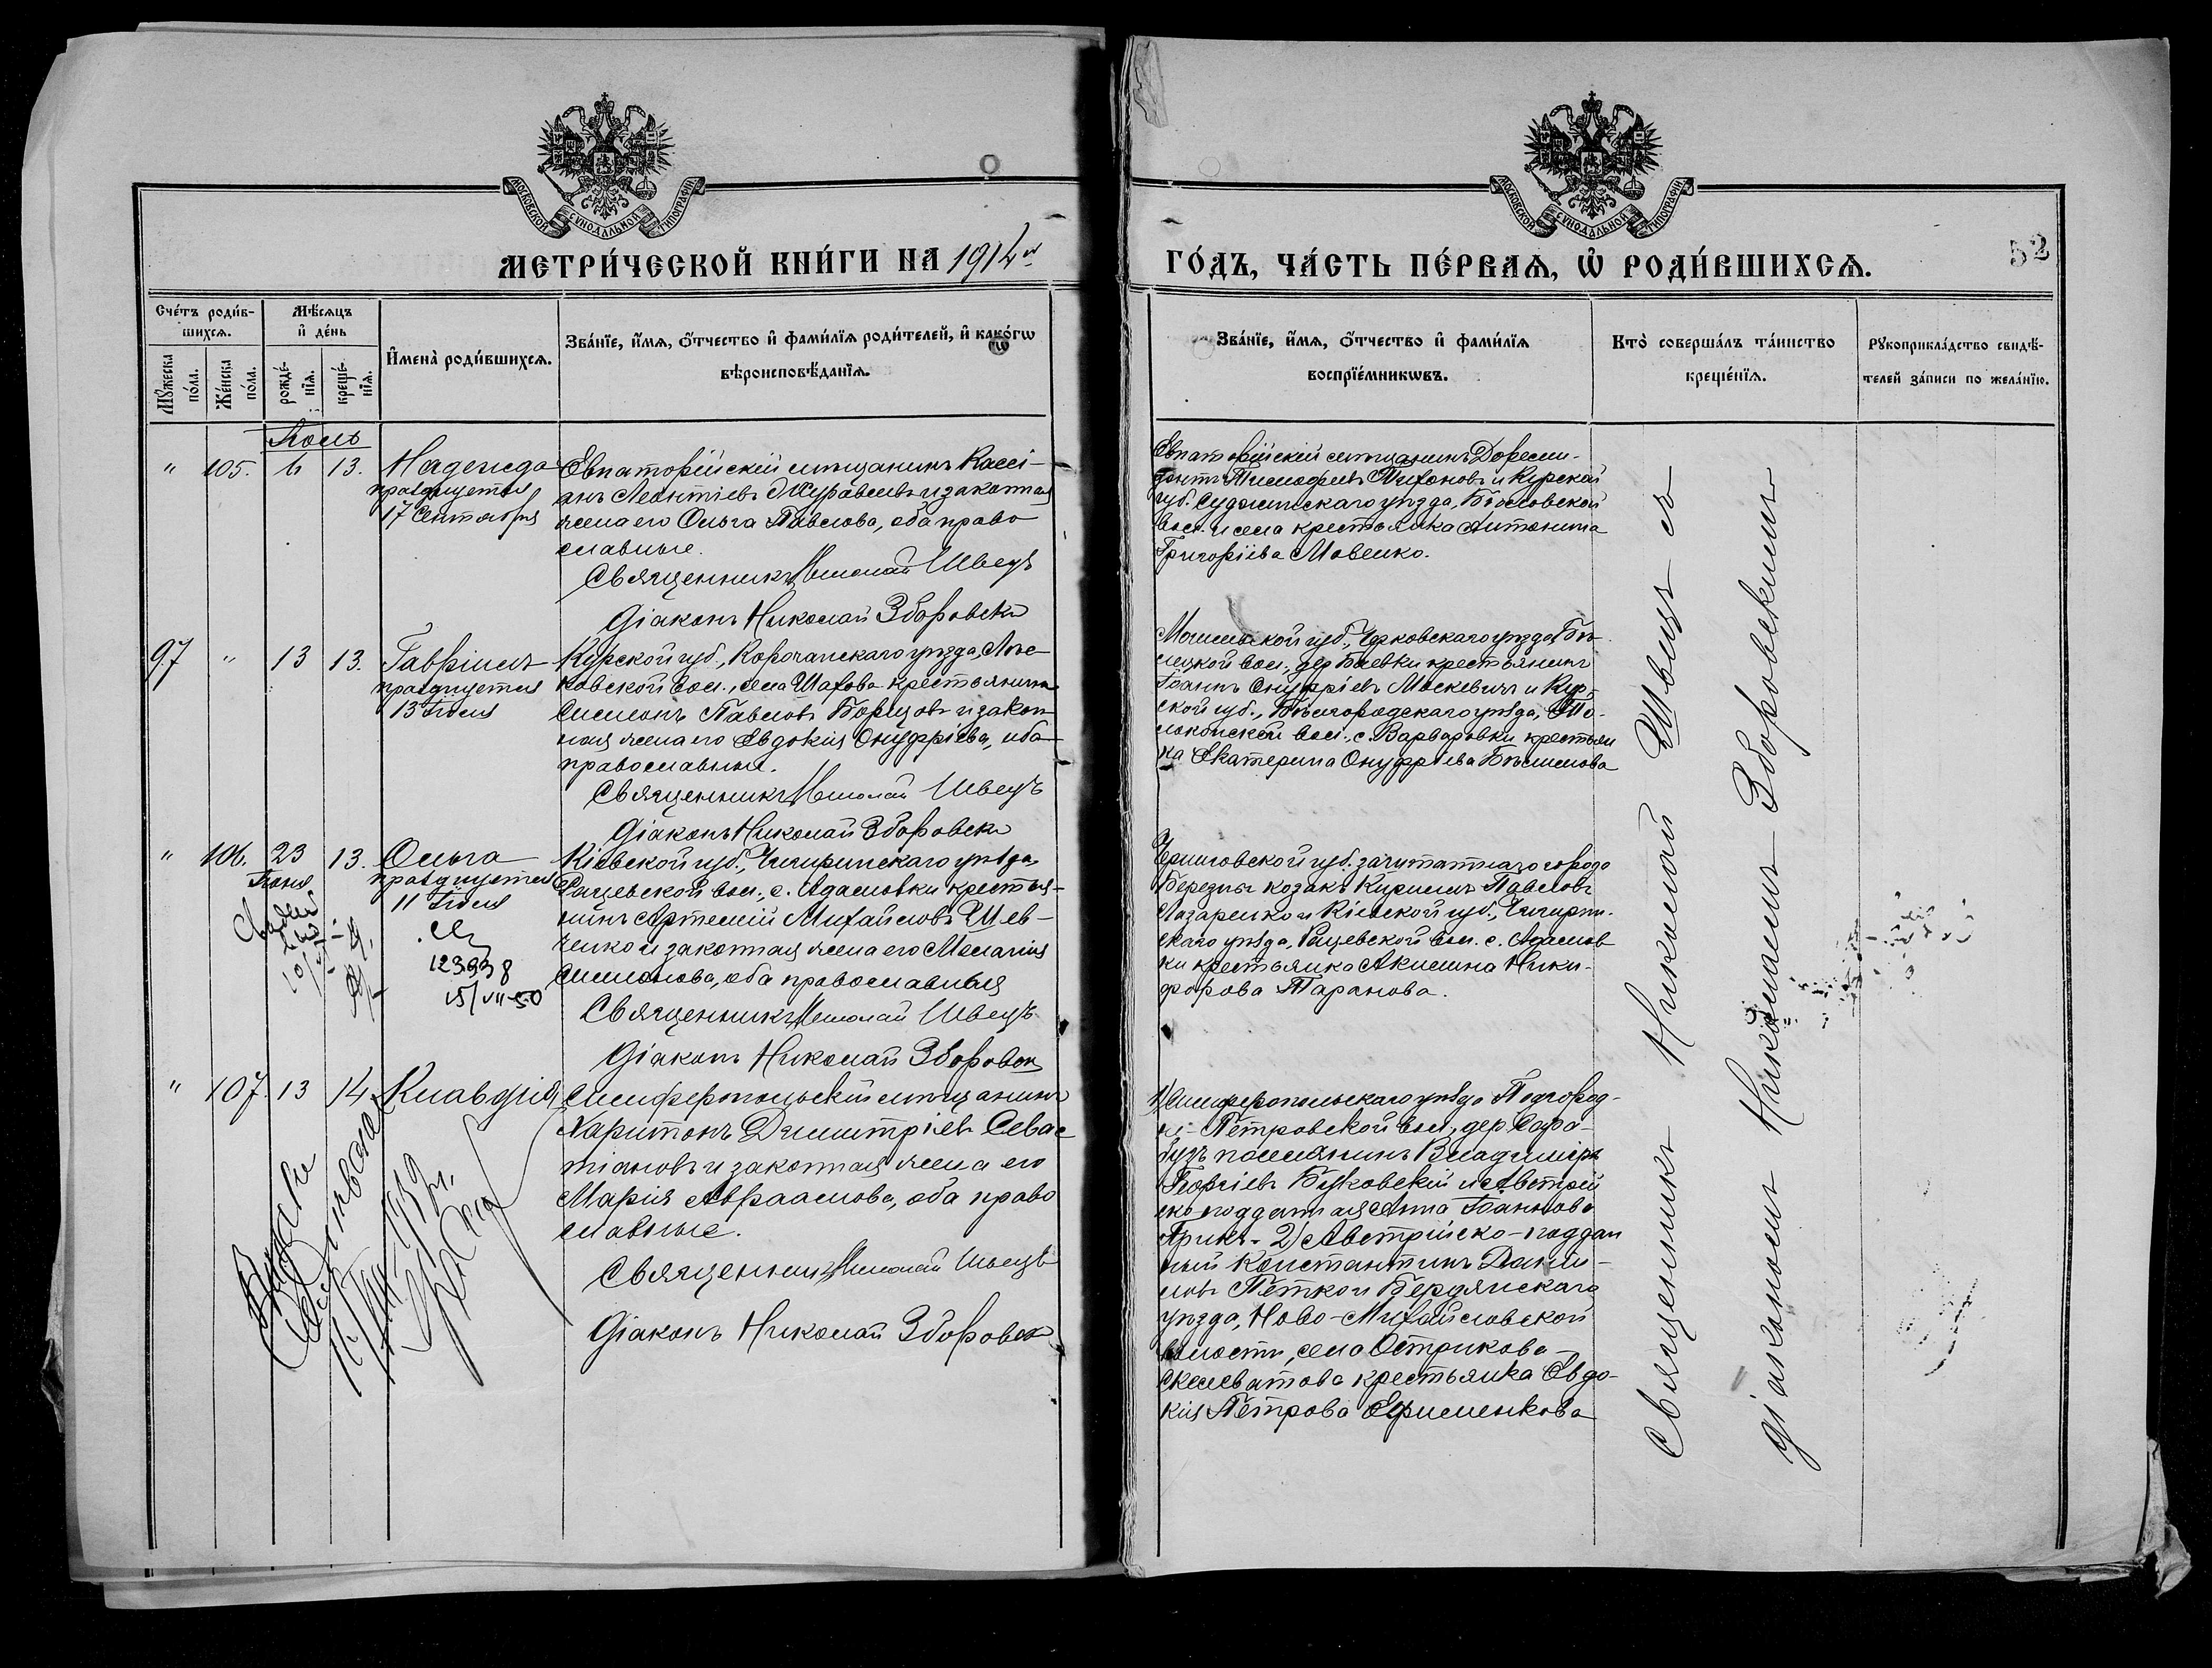 МОСКОВСКОЙ СУНОДАЛЬНОЙ ТИПОГРАФІИ
МЕТРИ́ЧЕСКОЙ КНИ́ГИ НА 1914й
Сче́тъ роди́в-
шихсѧ.
Мѣ́сѧцъ
и҆ де́нь
Мꙋ́жеска
по́ла.
Же́нска
по́ла.
рожде́-
нїѧ.
креще́-
нїѧ.
И҆мена̀ роди́вшихсѧ.
Зва́нїе, и҆́мѧ, ѻ҆́тчество и҆ фами́лїѧ роди́телей, и҆ како́гѡ
вѣроисповѣ́данїѧ.
Іюль
" 105. 6 13. Надежда
празднуется
17 Сентября
Евпаторійскій мѣщанинъ Кассі-
анъ Леонтіевъ Журавлевъ и законная
жена его Ольга Павлова, оба право
славные.
Священникъ Николай Швецъ
Діаконъ Николай Зборовскій
97 " 13 13. Гавріилъ
празднуется
13 Іюля
Курской губ., Корочанскаго уѣзда,
ковской вол., села Шахова крестьянинъ
Симеонъ Павловъ Борцовъ и закон
ная жена его Евдокія Онуфріева, оба
православные.
Священникъ Николай Швецъ
Діаконъ Николай Зборовск
" 106. 23 13. Ольга
Іюня
празднуется
11 Іюля
123938
15/VII-50
Кіевской губ., Чигиринскаго уѣзда,
Рацевской вол., с. Адамовки крестья-
нинъ Артемій Михайловъ Шев-
ченко и законная жена его Меланія
Симонова, оба православныя
Священникъ Николай Швецъ
Діаконъ Николай Зборовск
" 107. 13 14 Клавдія
Симферопольскій мѣщанинъ
Харитонъ Димитріевъ Севас
тіановъ и законная жена его
Марія Авраамова, оба право
славные.
Священникъ Николай Швецъ
Діаконъ Николай Зборовск
МОСКОВСКОЙ СУНОДАЛЬНОЙ ТИПОГРАФІИ
52
ГО́ДЪ, ЧА́СТЬ ПЕ́РВАѦ, Ѡ҆ РОДИ́ВШИХСѦ.
Зва́нїе, и҆́мѧ, ѻ҆́тчество и҆ фами́лїѧ
воспрїе́мникѡвъ.
Кто̀ соверша́лъ та́инство
креще́нїѧ.
Рꙋкоприкла́дство свидѣ́-
телей за́писи по жела́нїю.
Евпаторійскій мѣщанинъ Дореми-
донтъ Тимофеевъ Тихоновъ и Курской
губ. Суджанскаго уѣзда, Бѣловской
вол. и села крестьянка Антонина
Григоріева Мовенко.
Могилевской губ., уѣзда, Бѣ-
лецкой вол., дер. Баевки крестьянинъ
Іоаннъ Онуфріевъ Москевичъ и Кур-
ской губ., Бѣлгородскаго уѣзда,
вол., с. Варваровки крестьян
ка Екатерина Онуфріева
Черниговской губ. заштатнаго города
Березны козакъ Кириллъ Павловъ
Лазаренко и Кіевской губ., Чигирин-
скаго уѣзда, Рацевской вол. с. Адамов
ки крестьянка Акилина Ники-
форова Таранова.
1) Симферопольскаго уѣзда Подгород-
не-Петровской вол., дер. Сара-
бузъ поселянинъ Владиміръ
Георгіевъ Буковскій и Австрій
ско подданная Анна Іоаннова
2) Австрійско-поддан
ный Константинъ Дании-
ловъ Петко и Бердянскаго
уѣзда, Ново-Михайловской
волости, села Острикова-
крестьянка Евдо-
кія Петрова Ефименкова
Священникъ Николай Швецъ съ
діакономъ Николаемъ Зборовскимъ